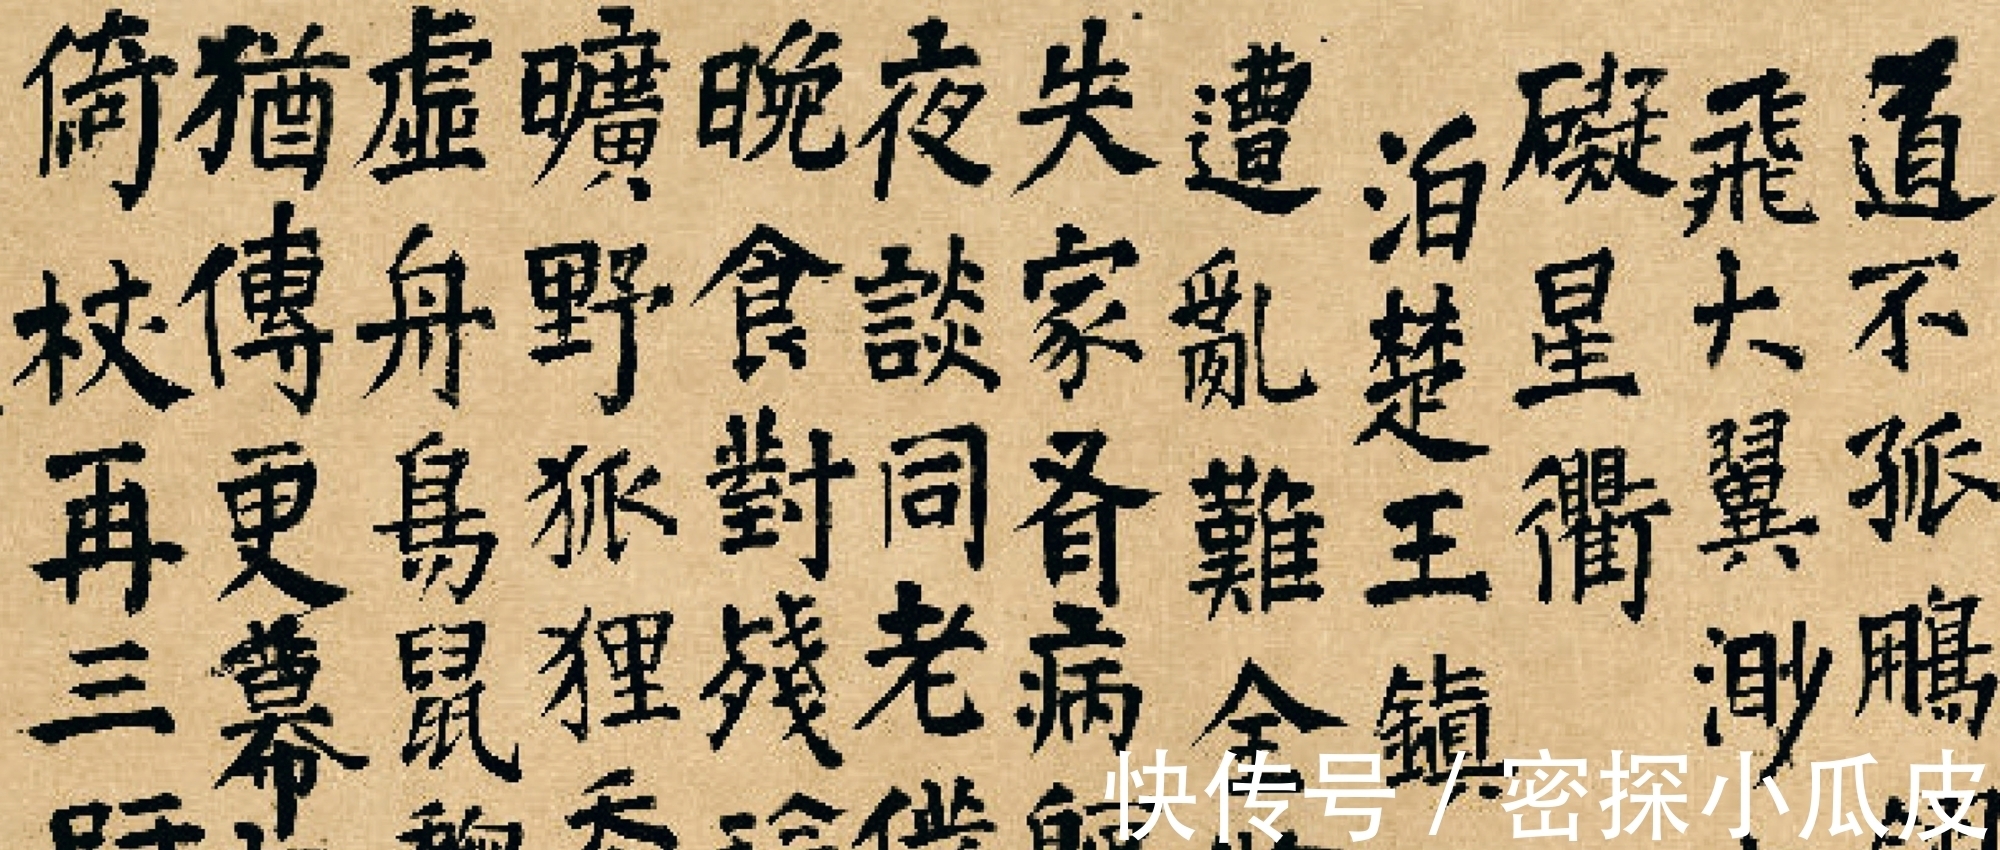 道不孤鵬
飛大翼渺
礙星衢
泊楚王鎮
遭亂難全
失家眷病
夜談同老
晚食對殘
曠野狐狸
虛舟鳥鼠
猶傳更幕
倚杖再三
快传号/密探小瓜皮